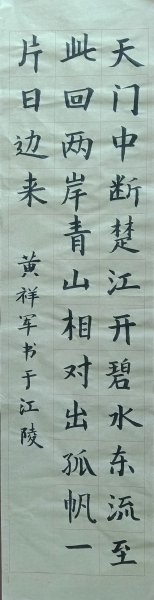 天门中断楚江开碧水东流至
此回两岸青山相对出孤帆一
片日边来
黄祥军书于江陵